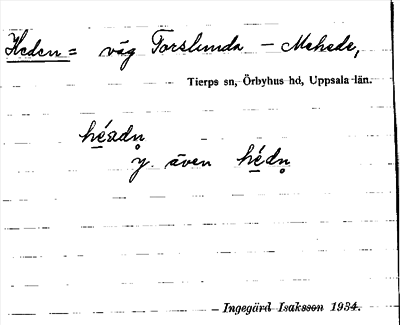 Heden = väg Torslunda - Mehede,
Tierps sn, Örbyhus hd, Uppsala län.
héadn̥
y. även hédn̥
Ingegärd Isaksson 1934.